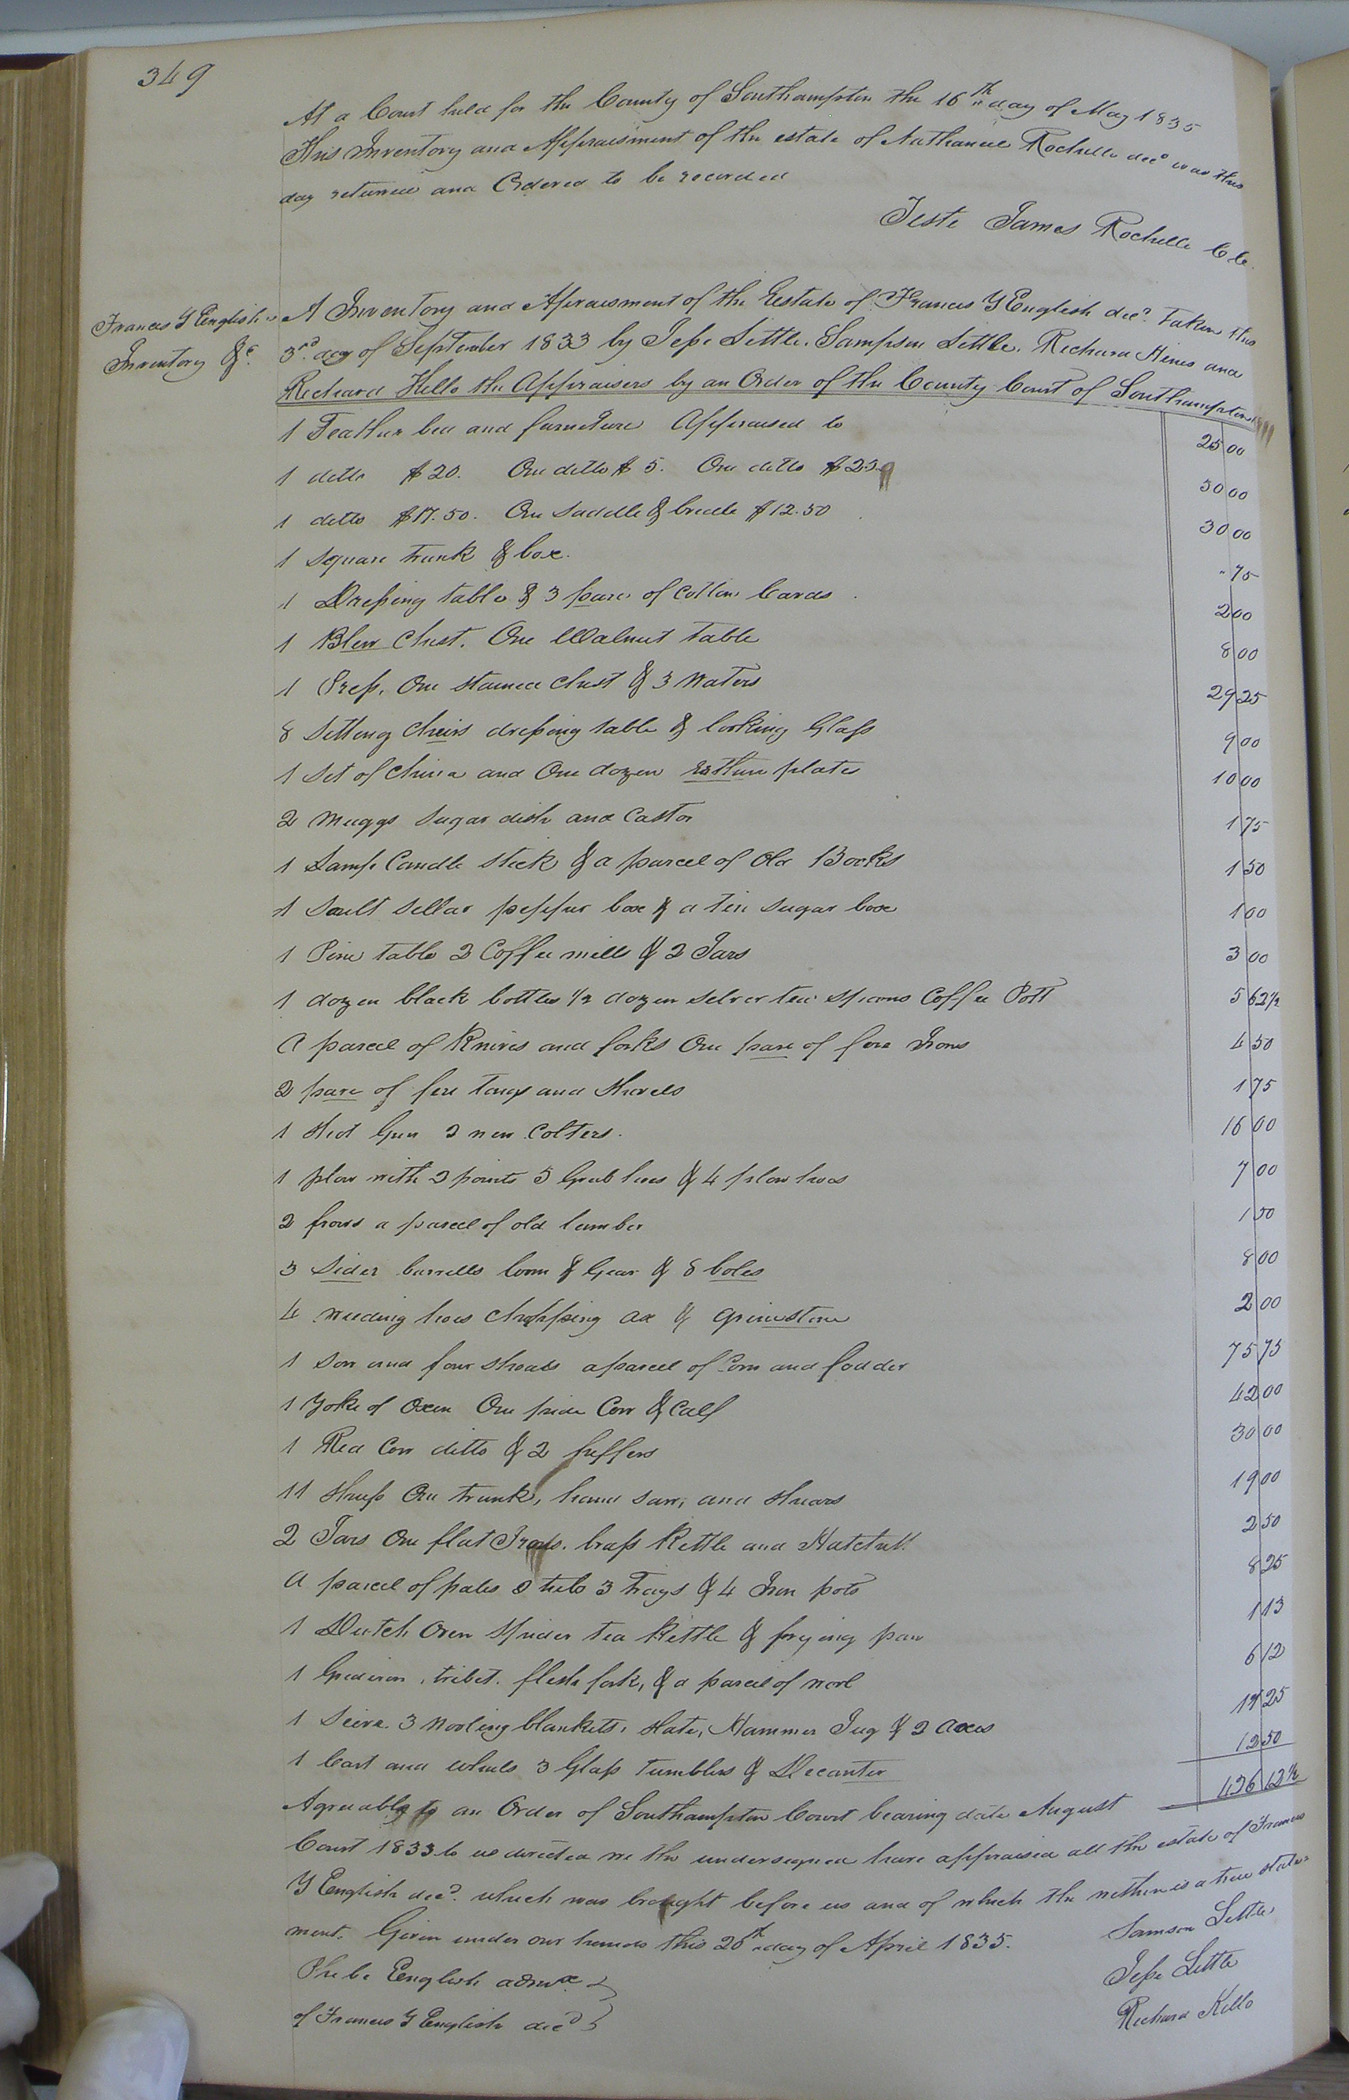 349
At a Court held for the County of Southampton the 16th day of May 1835
This Inventory and Appraisment of the estate of Nathaniel Rochelle decd was this
day returned and Ordered to be recorded
Teste James Rochelle C.C.
Francis Y English's
Inventory &c
A Inventory and Apraisment of the Estate of Francis Y English decd. Taken this
3rd. day of September 1833 by Jesse Little. Sampson Little. Richard Hines and
Richard Kello the Appraisers by an Order of the County Court of Southampton
1 Feather bed and furniture Appraised to 25 00
1 ditto $20. One ditto $5. One ditto $25 50 00
1 ditto $17.50. One Saddle & bridle $12.50 30 00
1 square trunk & box. " 75
1 Dressing table & 3 pare of Cotton Cards 2 00
1 Blew Chest. One Walnut table 8 00
1 Press, One stained chest & 3 waters 29 25
8 Setting cheirs dressing table & looking Glass 9 00
1 Set of China and One dozen erthen plates 10 00
2 Muggs Sugar dish and Castor 1 75
1 Lamp Candle stick & a parcel of Old Books 1 50
1 Sault Sellar peppur box & a tin sugar box 1 00
1 Pine table 2 Coffee mills & 2 Jars 3 00
1 dozen black bottles 1/2 dozen silver tea spoons Coffee Pott 5 62 1/2
A parcel of Knives and forks One pare of fire Irons 4 50
2 pare of fire tongs and Shovels 1 75
1 Shot Gun 2 new Colters. 16 00
1 plow with 2 points 5 Grub hoes & 4 plow hoes 7 00
2 frows a parcel of old lumber 1 50
3 Sider barrells loom & Gear & 8 boles 8 00
4 weeding hoes chopping ax & grinestone 2 00
1 Sow and four shoats a parcel of Corn and fodder 75 75
1 Yoke of Oxen One pide Cow & Calf 42 00
1 Red Cow ditto & 2 heffers 30 00
11 Sheep One trunk, hand saw, and shears 19 00
2 Jars One flat Irons. brass Kettle and Hatchet 2 50
A parcel of pales tubs 3 Trays & 4 Iron pots 8 25
1 Dutch Oven Spider tea Kettle & frying pan 1 13
1 Gridiron, tribet. flesh fork, & a parcel of wool 6 12
1 Seive. 3 Wooling blankets, slate, Hammer Jug & 2 axes 25
1 Cart and wheels 3 Glass tumblers & Decanter 12 50
12 1/2
Agreeable to an Order of Southampton Court bearing date August
Court 1833 to us directed we the undersigned have appraised all the estate of Francis
Y English decd. which was brought before us and of which the within is a true state=
ment. Given under our hands this 20th day of April 1835.
Samson Little
Jesse Little
Richard Kello
Phebe English admx
of Francis Y English decd